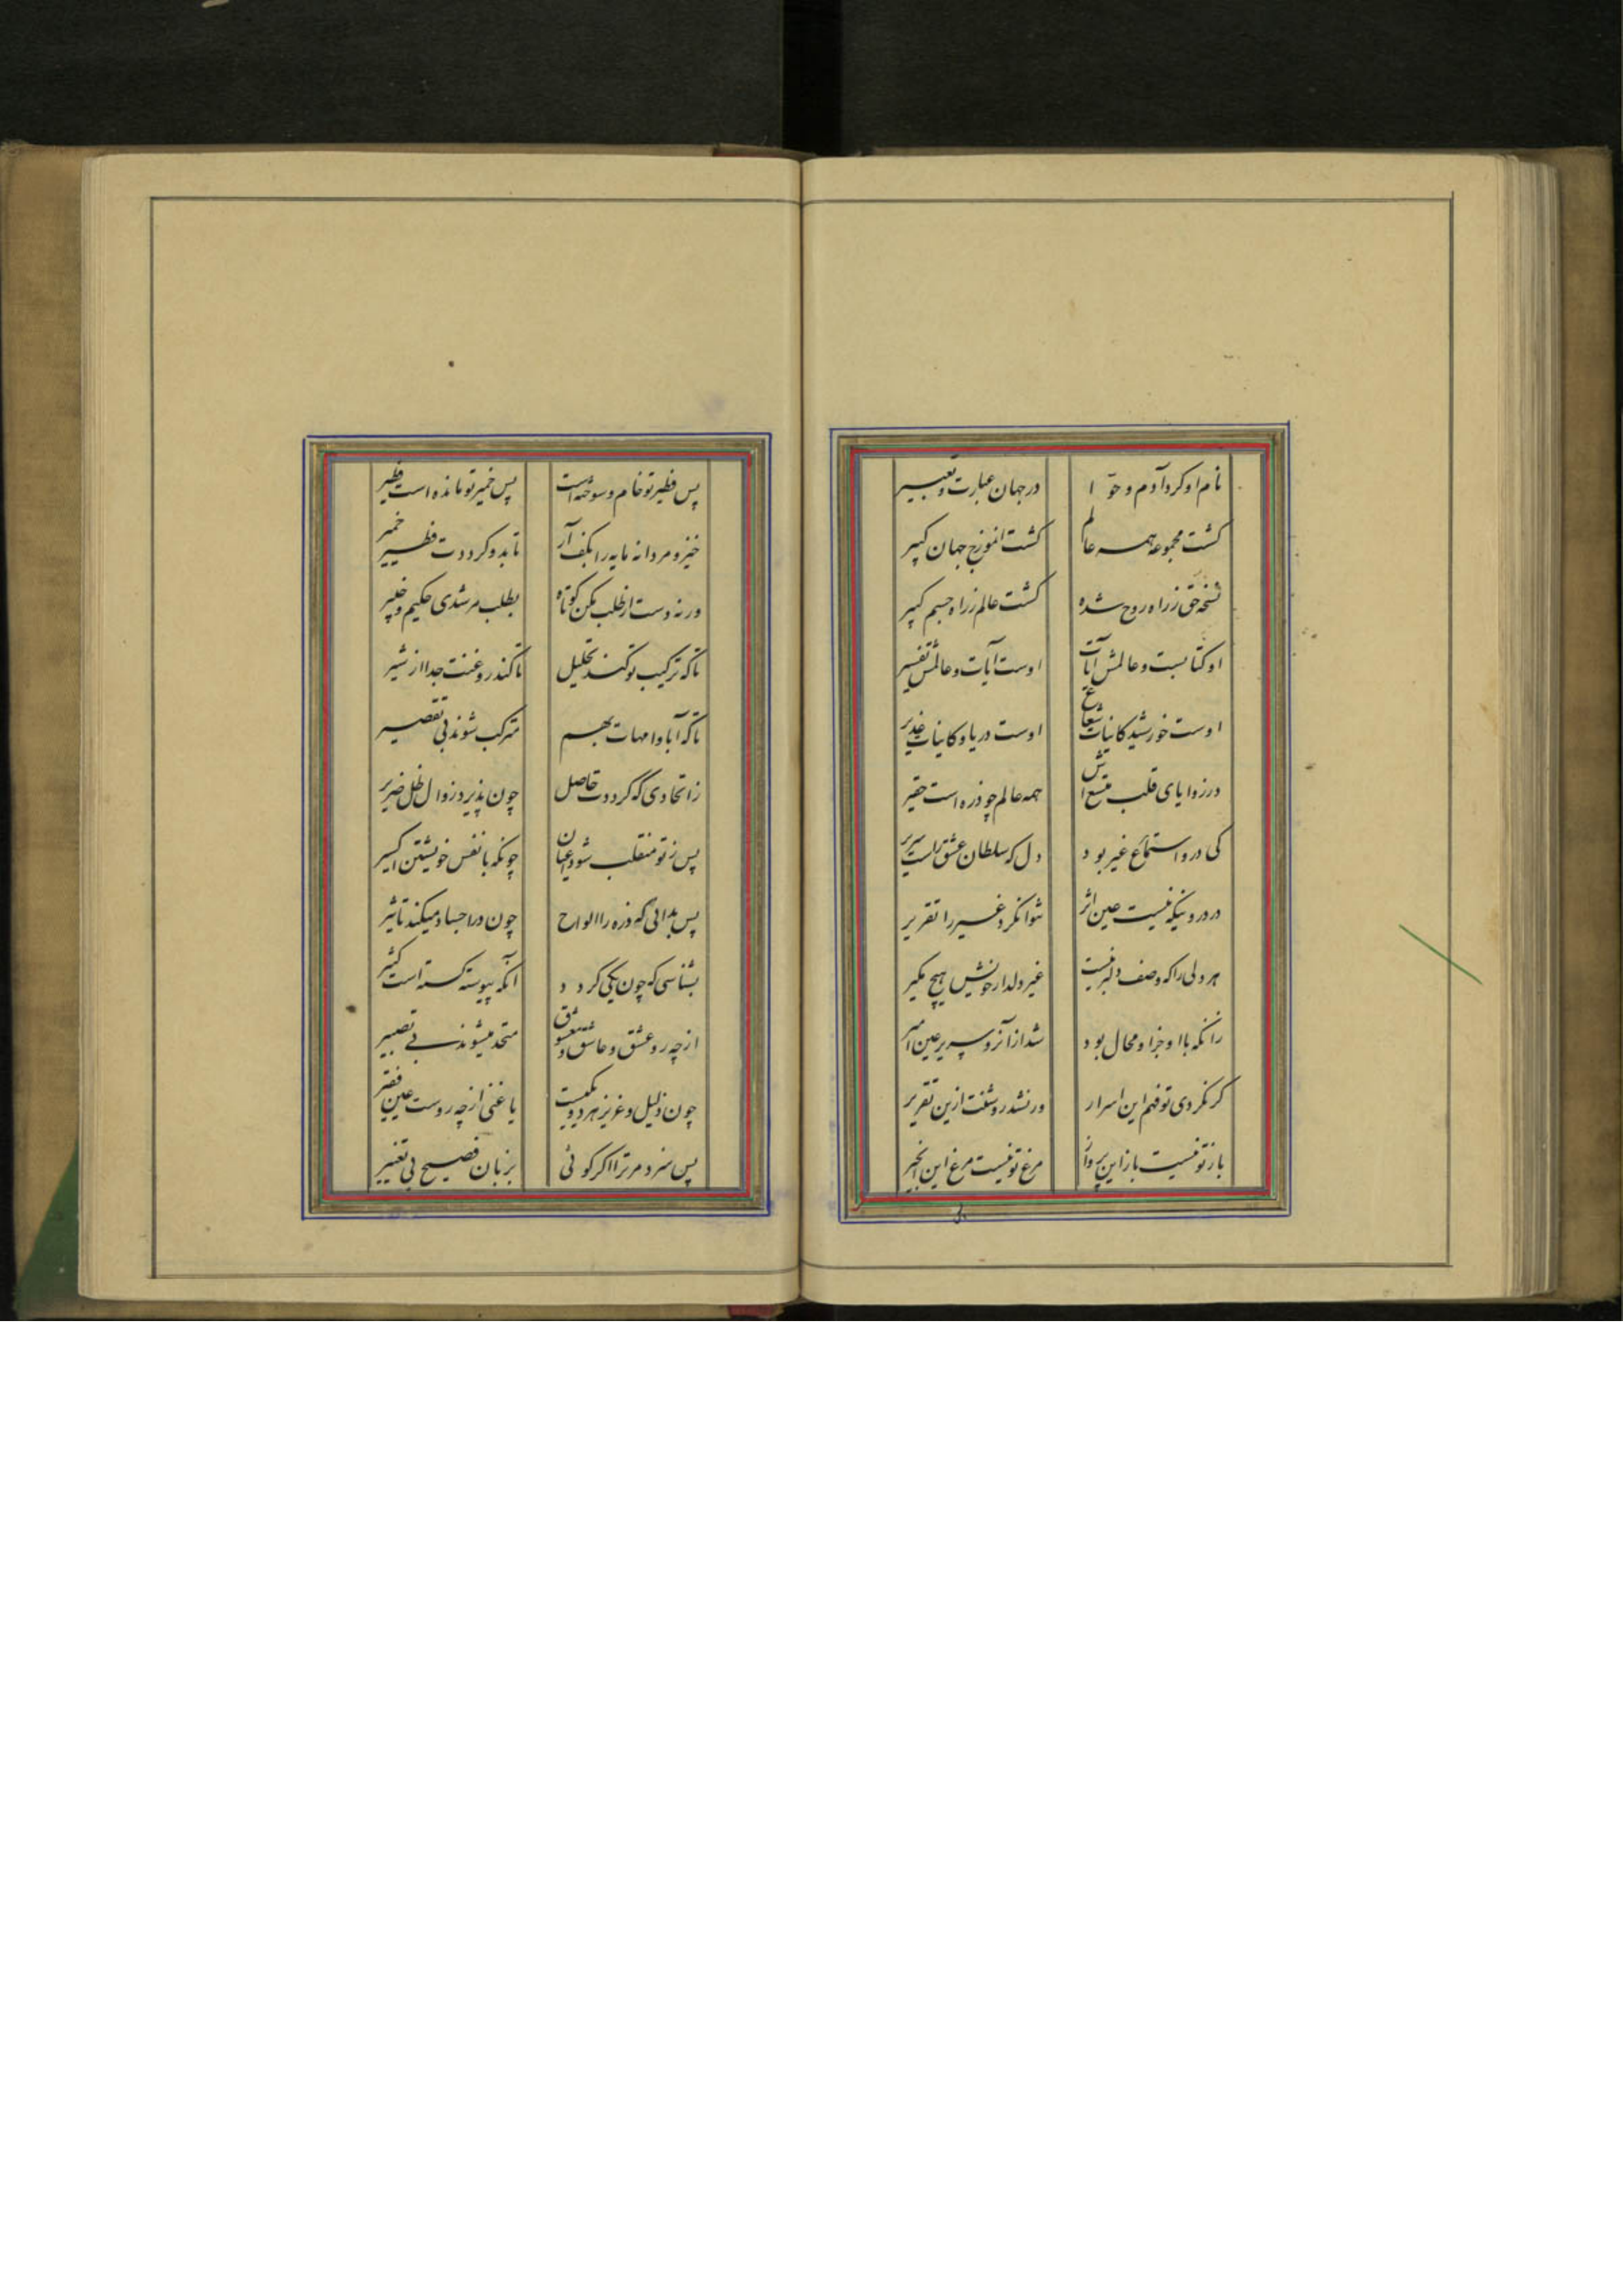 نام او کرد آدم و حوّا در جهان عبارت و تعبیر
کشت مجموعه همه عالم کشت انموزج جهان کبیر
نسخه حق ز راه روح شده کشت عالم ز راه جسم کبیر
او کتابست و عالمش آیات اوست آیات و عالمش تفسیر
اوست خورشید کاینات شعاع اوست دریا و کاینات غدیر
در زوایای قلب متسع‌اش همه عالم چو ذره است حقیر
کی درو استماع غیر بود دل که سلطان عشق راست سریر
در درونیکه نیست عین اثر نتوانکرد غیر را تقریر
هر دلی را که وصف دلبر نیست غیر دلدار خویش هیچ مکیر
زانکه با او جز او محال بود شد از آنرو سریر عین امیر
کر نکردی تو فهم این اسرار ور نشد روشنت ازین تقریر
باز تو نیست باز این پرواز مرغ تو نیست مرغ این انجیر
پس فطیر تو خام و سوخته است پس خمیر تو مانده است فطیر
خیز و مردانه مایه را بکف آر تا بدو کرددت فطیر خمیر
ورنه دست از طلب مکن کوتاه بطلب مرشدی حکیم و خبیر
تا که ترکیب تو کند تحلیل تا کند روغنت جدا از شیر
تا که آبا و امهات بهم مترکب شوند بی تقصیر
ز اتحادی که کرددت حاصل چون پذیرد زوال ظل ضریر
پس ز تو منقلب شود اعیان چونکه با نفس خویشتن اکسیر
پس بدانی که ذره را الواح چون در اجساد میکند تاثیر
بشناسی که چون یکی کردد آنکه پیوسته کسته است کثیر
از چه رو عشق و عاشق و معشوق متحد میشوند بی تصییر
چون ذلیل و عزیز هر دو یکیست یا غنی از چه روست عین فقیر
پس سزد مر ترا اکر کوئی بزبان فصیح بی تغییر